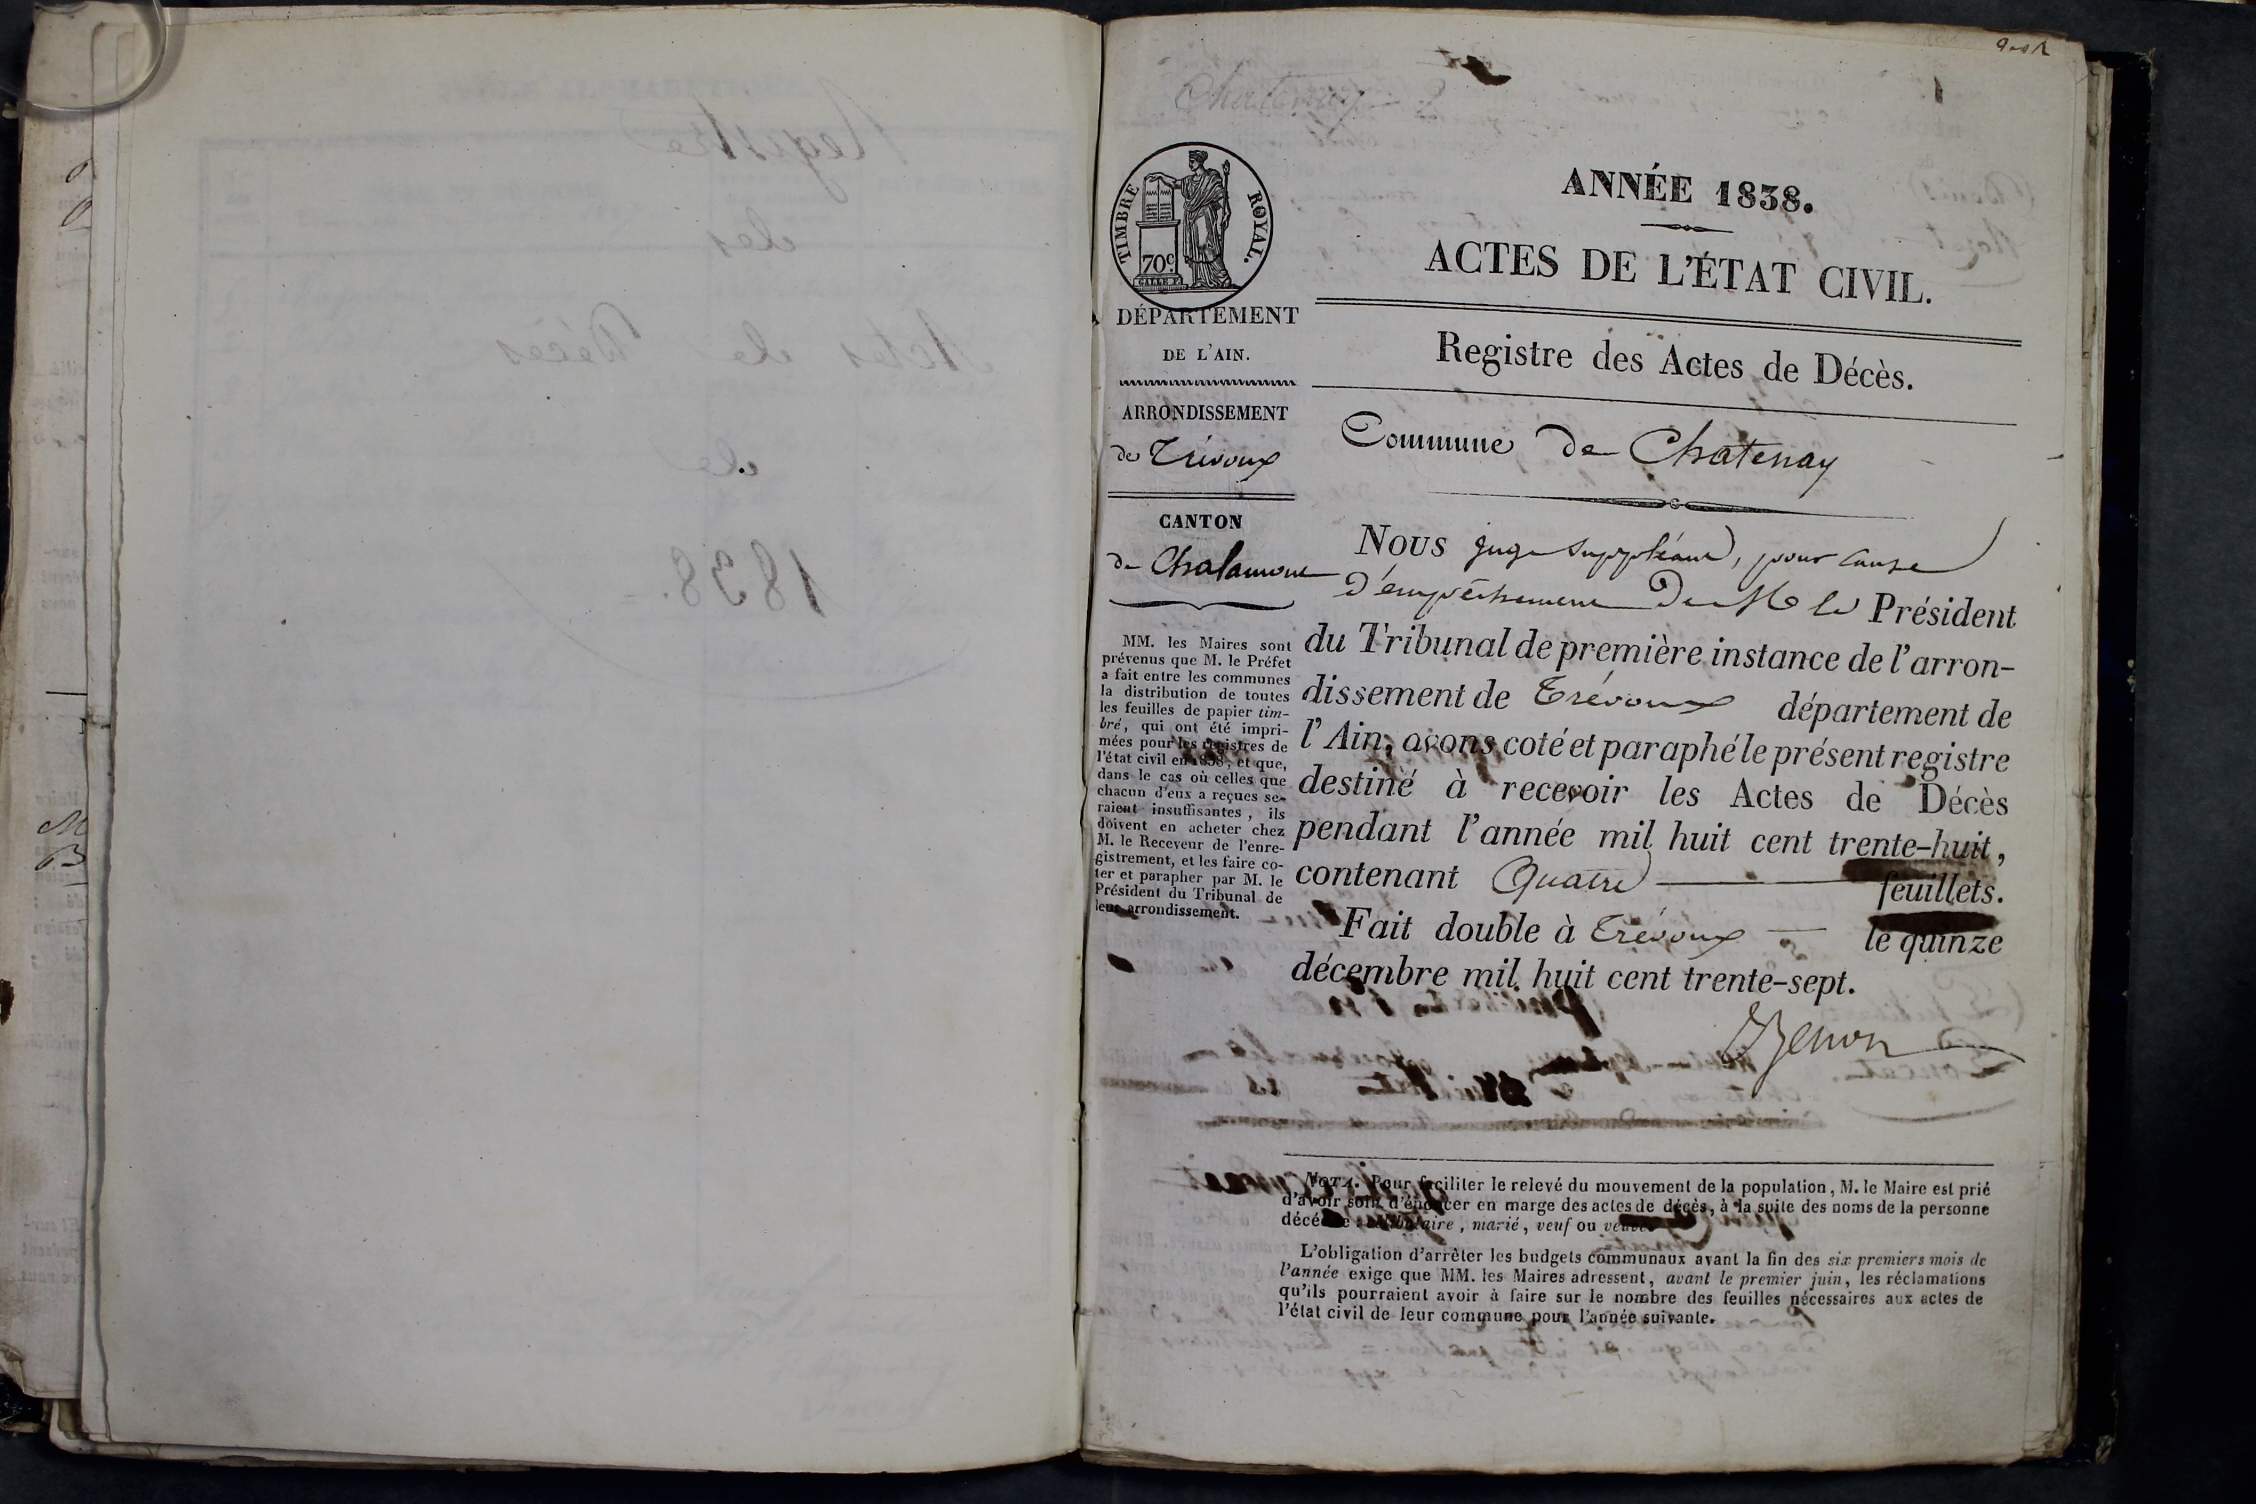 Chatenay 2
1
TIMBRE ROYAL.
70c
DÉPARTEMENT
DE L'AIN.
ARRONDISSEMENT
de Trévoux
CANTON
de Chalamont
MM. les Maires sont
prévenus que M. le Préfet
a fait entre les communes
la distribution de toutes
les feuilles de papier tim-
bré, qui ont été impri-
mées pour les registres de
l'état civil en 1838, et que,
dans le cas où celles que
chacun d'eux a reçues se-
raient insuffisantes, ils
doivent en acheter chez
M. le Receveur de l'enre-
gistrement, et les faire co-
ter et parapher par M. le
Président du Tribunal de
leur arrondissement.
ANNÉE 1838.
ACTES DE L'ÉTAT CIVIL.
Registre des Actes de Décès.
Commune de Chatenay
Nous juge suppléant, pour cause
d'empêchement de M le Président
du Tribunal de première instance de l'arron-
dissement de Trévoux département de
l'Ain, avons coté et paraphé le présent registre
destiné à recevoir les Actes de Décès
pendant l'année mil huit cent trente-huit,
contenant Quatre feuillets.
Fait double à Trévoux le quinze
décembre mil huit cent trente-sept.
NOTA. Pour faciliter le relevé du mouvement de la population, M. le Maire est prié
d'avoir soin d'énoncer en marge des actes de décès, à la suite des noms de la personne
décédée : célibataire, marié, veuf ou veuve.
L'obligation d'arrêter les budgets communaux avant la fin des six premiers mois de
l'année exige que MM. les Maires adressent, avant le premier juin, les réclamations
qu'ils pourraient avoir à faire sur le nombre des feuilles nécessaires aux actes de
l'état civil de leur commune pour l'année suivante.